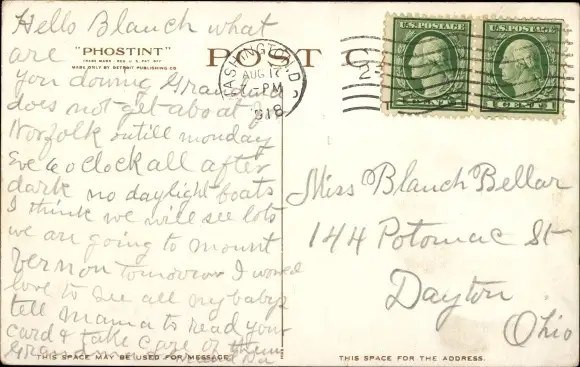 Hello Blanch what
are
you doing Grandma
does not get a boat of
Norfolk untill monday
Eve 6 o clock all after
dark no daylight boats
I think we will see lots
we are going to mount
Vernon tomorrow I would
love to see all my babys
tell mama to read your
card & take care of them
Grandma
"PHOSTINT"
TRADE MARK - REG. U.S. PAT. OFF.
MADE ONLY BY DETROIT PUBLISHING CO.
POST C
WASHINGTON, D.
AUG 17
PM
1918
U.S. POSTAGE
1 CENT 1
U.S. POSTAGE
1 CENT 1
Miss Blanch Bellar
144 Potomac St
Dayton
Ohio
THIS SPACE MAY BE USED FOR MESSAGE.
THIS SPACE FOR THE ADDRESS.